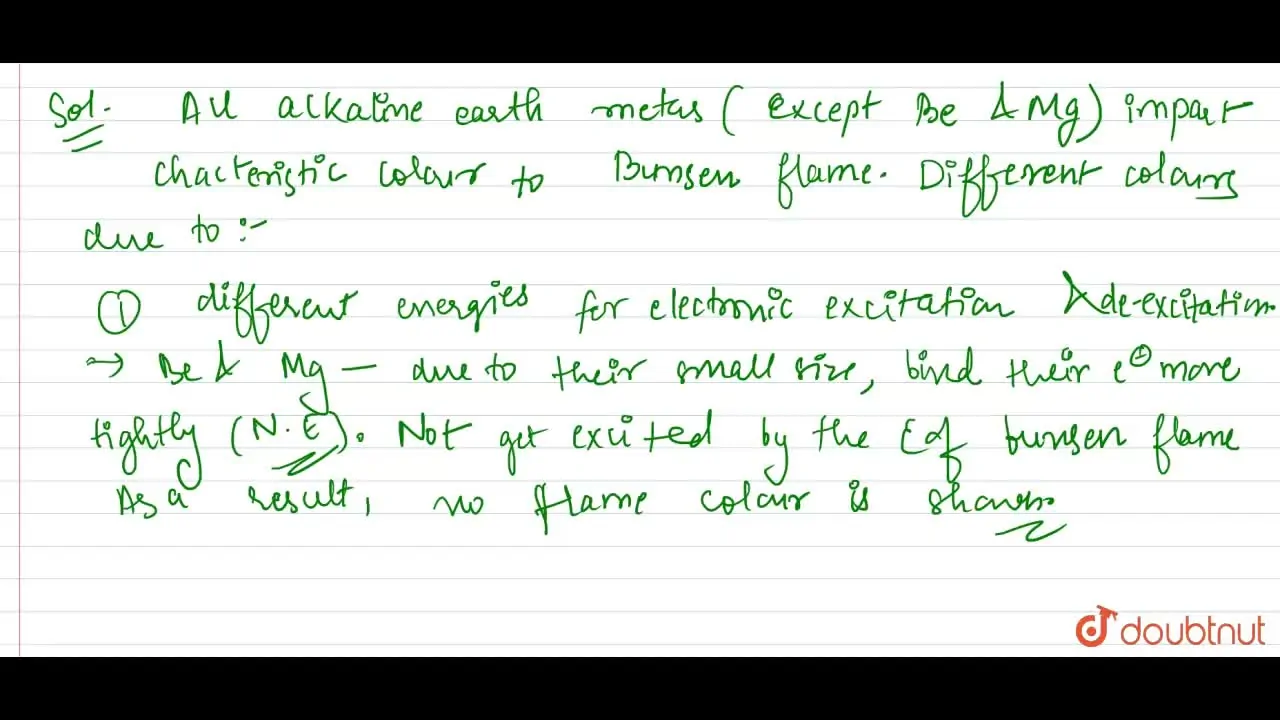 Sol. All alkaline earth metas ( except Be & Mg) impart
chacteristic colour to Bunsen flame. Different colours
due to :-
① different energies for electronic excitation & de-excitation.
→ Be & Mg — due to their small size, bind their e⊕ more
tightly (N.E). Not get excited by the E of bunsen flame
As a result, no flame colour is shown
doubtnut